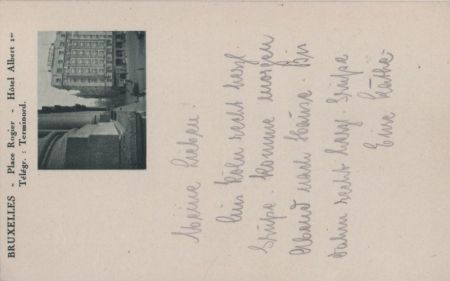 BRUXELLES - Place Rogier - Hôtel Albert 1er
Télégr. : Terminord.
Meine Lieben!
Aus Köln recht herzl.
Grüße. Komme morgen
Abend nach Hause. Bis
dahin recht herz. Grüße
Eure Käthe.